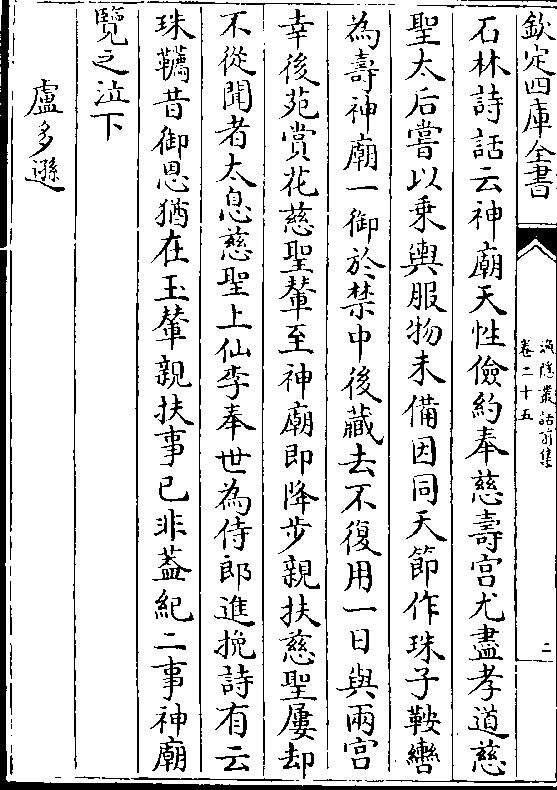 欽定四庫全書
漁隠叢話前集
卷二十五
二
石林詩話云神廟天性儉約奉慈壽宫尤盡孝道慈
聖太后嘗以乗輿服物未備因同天節作珠子鞍轡
為壽神廟一御於禁中後藏去不復用一日與兩宫
幸後苑賞花慈聖輦至神廟即降步親扶慈聖屢却
不從聞者太息慈聖上仙李奉世為侍郎進挽詩有云
珠韉昔御恩猶在玉輦親扶事已非葢紀二事神廟
覽之泣下
盧多遜